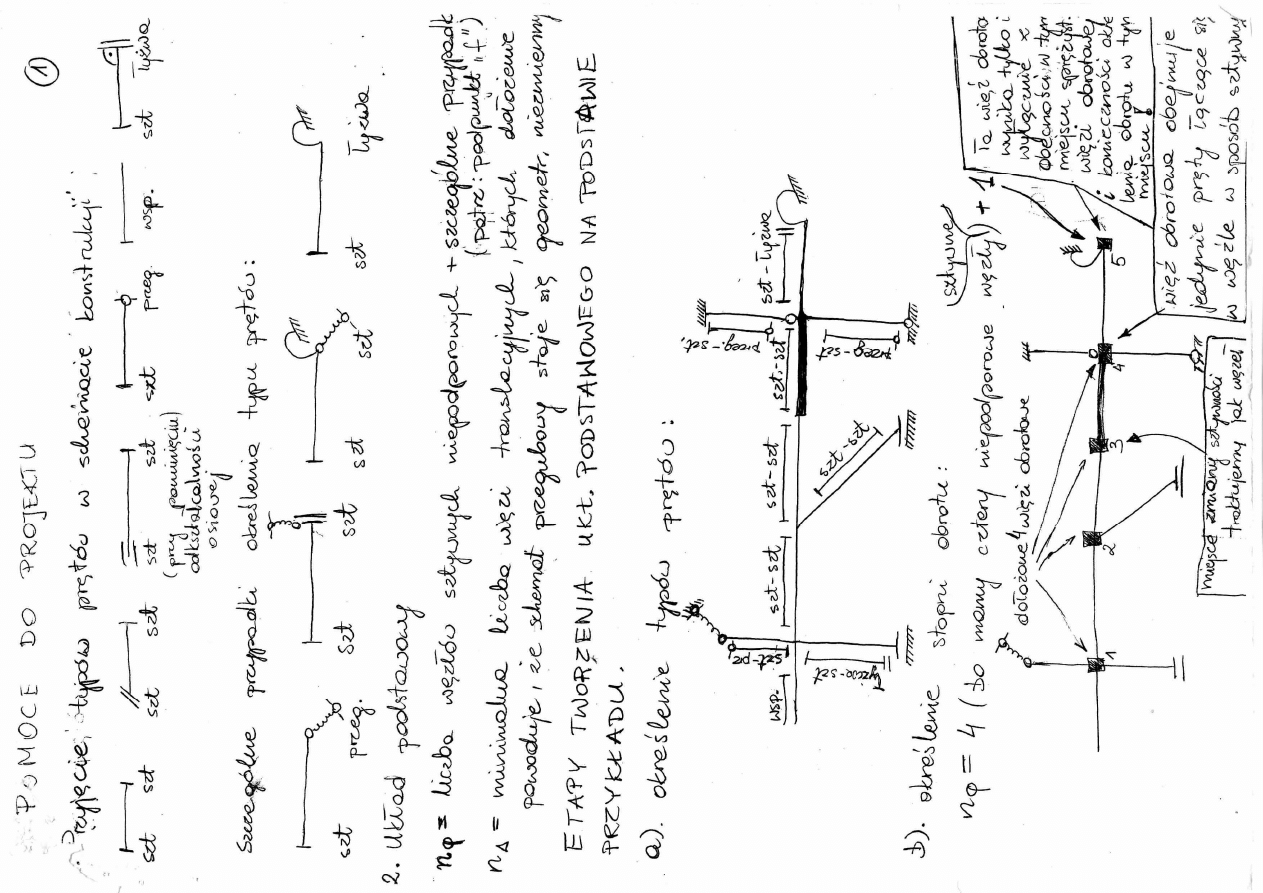 ①
POMOCE DO PROJEKTU
1. Przyjęcie typów prętów w schemacie konstrukcji:
szt szt szt szt szt szt szt przeg. wsp. szt łyżwa
(przy pominięciu
odkształcalności
osiowej)
Szczególne przypadki określenia typu prętów:
szt przeg. szt szt szt szt szt łyżwa
2. Układ podstawowy
nφ = liczba węzłów sztywnych niepodporowych + szczególne przypadk
(patrz: podpunkt "f")
nΔ = minimalna liczba więzi translacyjnych, których dołożenie
powoduje, że schemat przegubowy staje się geometr. niezmienny
ETAPY TWORZENIA UKŁ. PODSTAWOWEGO NA PODSTAWIE
PRZYKŁADU.
a). określenie typów prętów:
wsp. szt-pz łyżwa-szt szt-szt szt-szt szt-szt szt.-szt przeg.-szt. przeg-szt szt-łyżwa
b). określenie stopni obrotu:
nφ = 4 (bo mamy cztery niepodporowe sztywne węzły) + 1
dołożone 4 więzi obrotowe
1 2 3 4 5
miejsce zmiany sztywności
traktujemy jak węzeł
Ta więź obroto
wynika tylko i
wyłącznie z
obecności w tym
miejscu spręż yst.
więzi obrotowej
i konieczności okre
lenia obrotu w tym
miejscu
więź obrotowa obejmuje
jedynie pręty łączące się
w węźle w sposób sztywny